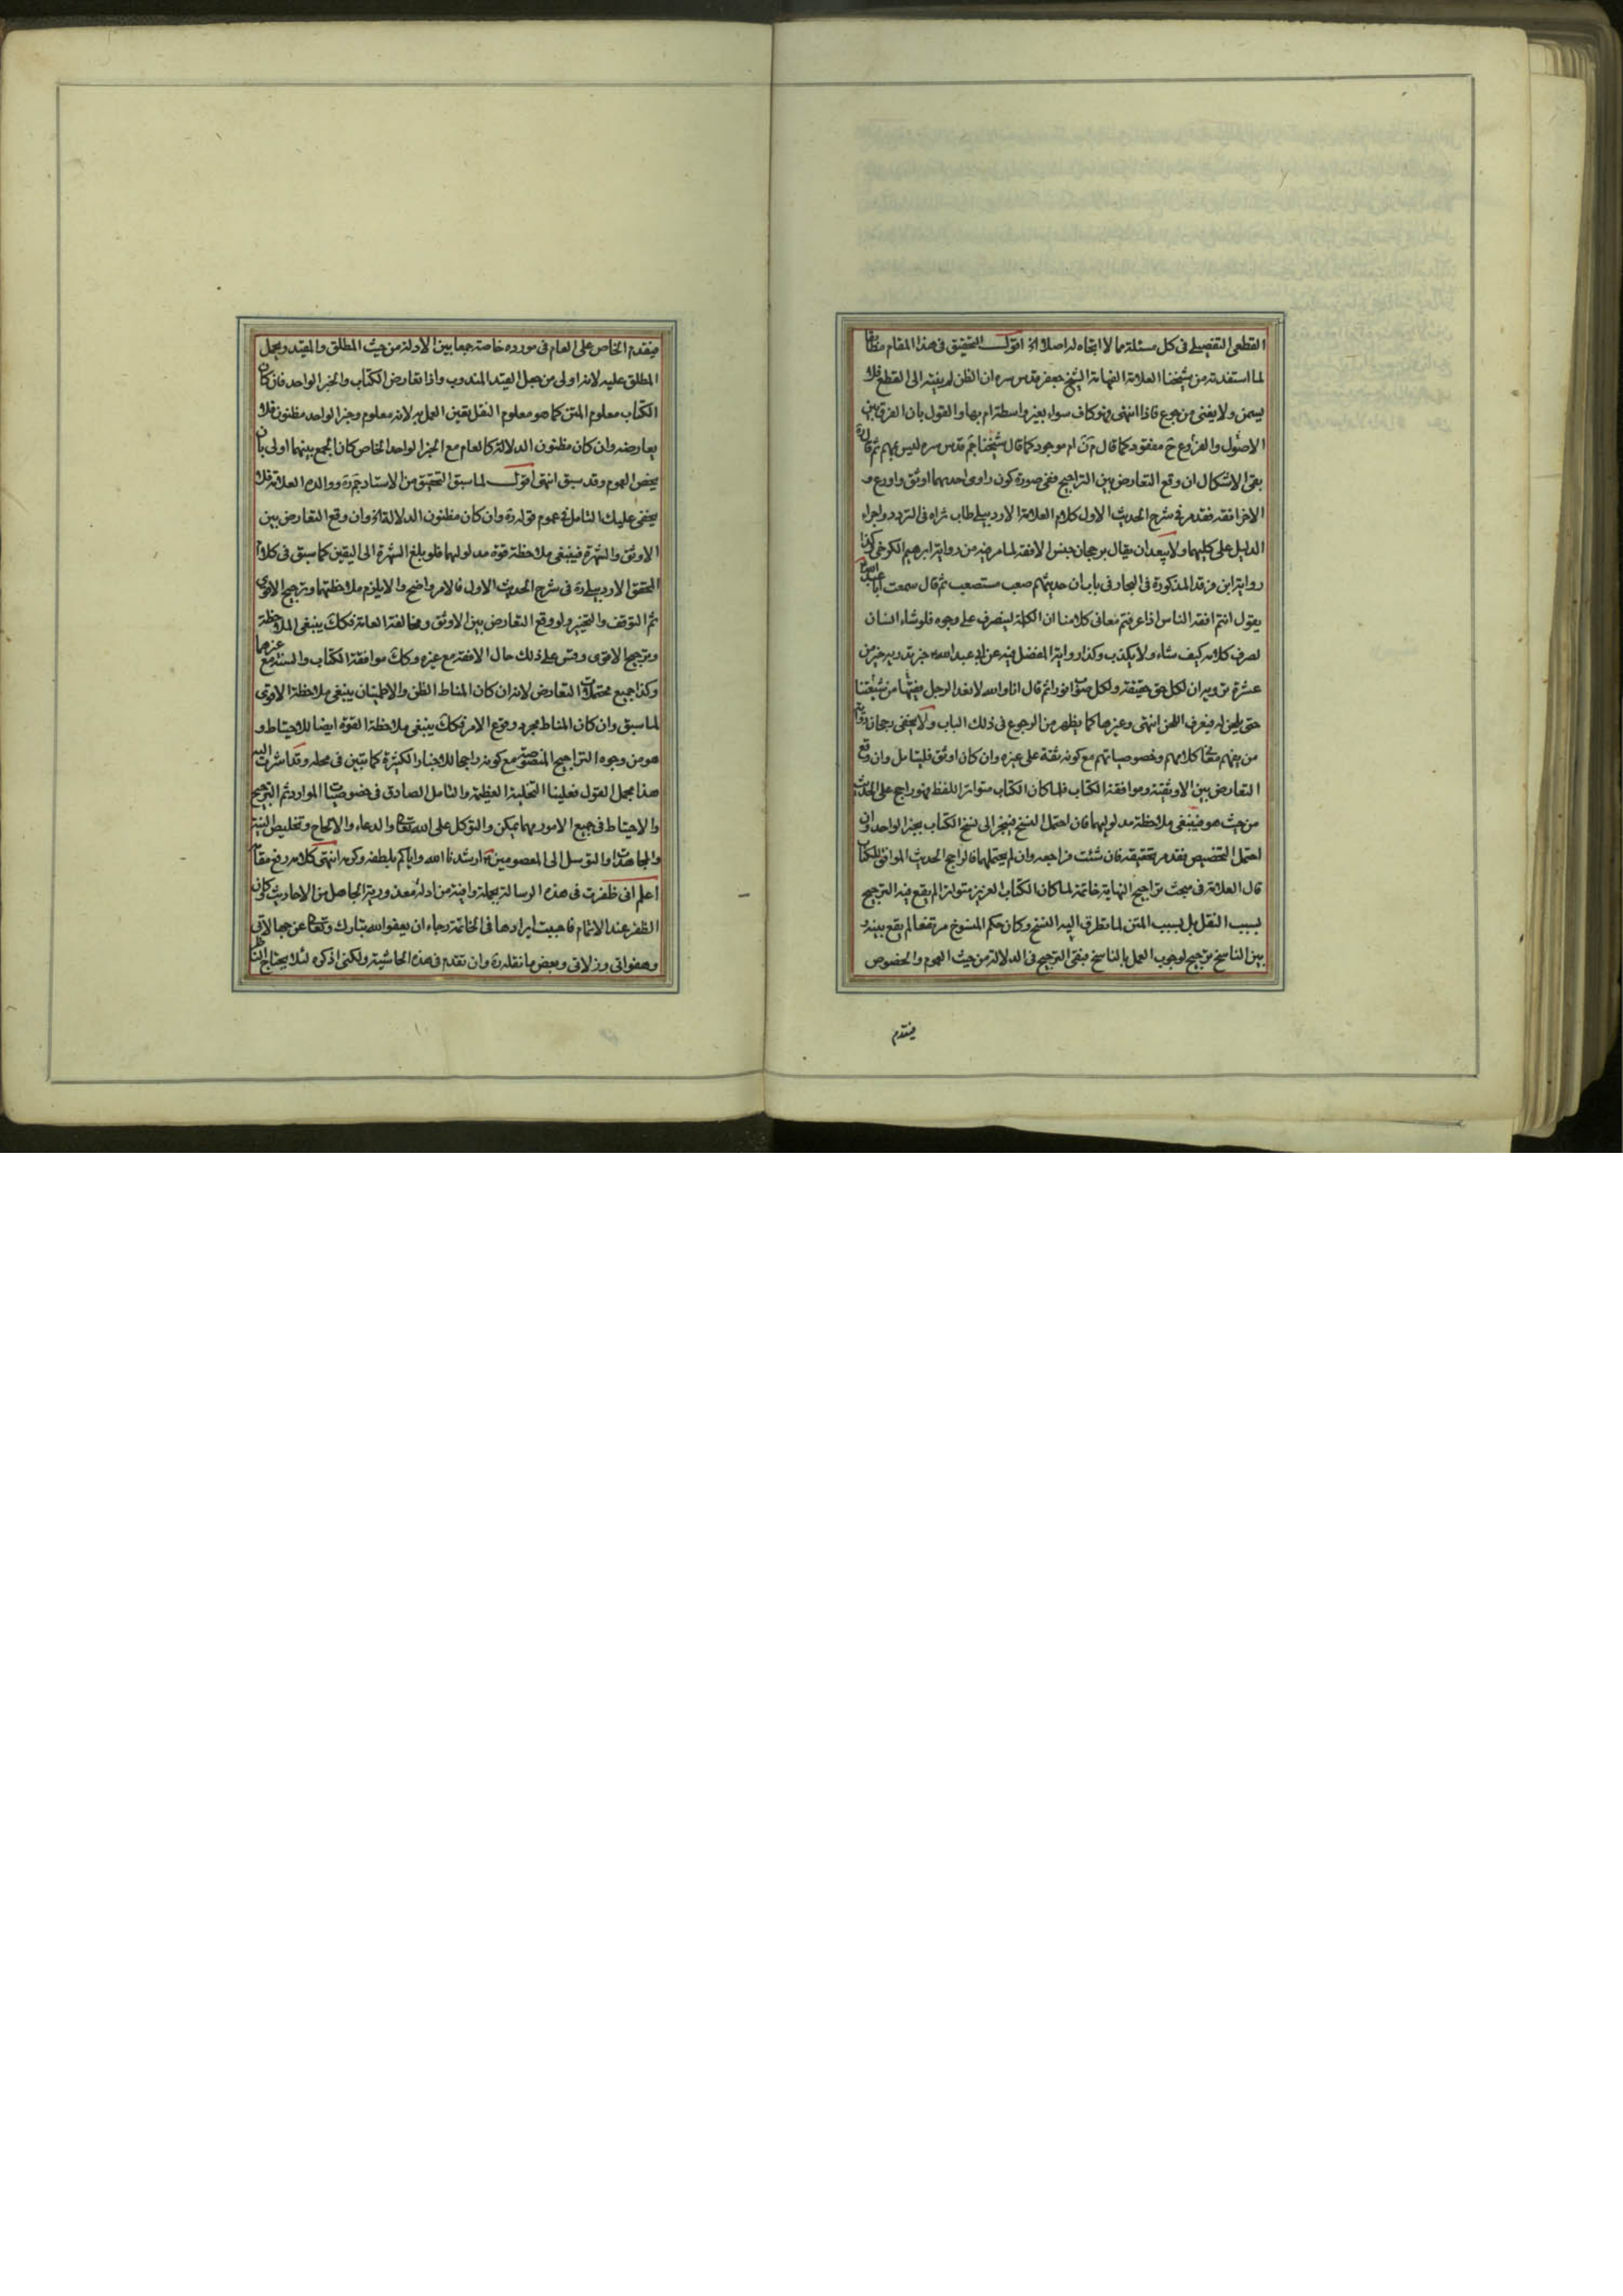 القطعى التفصيلى فى كل مسئلة مما لا اتجاه له اصلا اقول التحقيق فى هذا المقام
لما استفدته من شيخنا العلامة الفهامة الشيخ جعفر قدس سره ان الظن لم ينته الى القطع فلا
يسمن ولا يغنى من جوع فاذا انتهى فهو كاف سواء بغير واسطة ام بها والقول بان الفرق بين
الاصول والفروع مفقود كما قال ام موجود كما قال شيخنا قدس سره ليس بمهم ثم قال
بقى الاشكال ان وقع التعارض بين التراجيح ففى صورة كون راوى احديهما اوثق واورع و
الاخر افقه فقد مر فى شرح الحديث الاول كلام العلامة الاردبيلى طاب ثراه فى التردد واجراء
الدليل على كليهما ولا يبعد ان يقال برجحان جنس الافقه لما مر فيه من رواية ابرهيم الكرخى وكذا
رواية ابن فرقد المذكورة فى البحار فى باب ان حديثهم صعب مستصعب ثم قال سمعت ابا عبد الله
يقول انتم افقه الناس اذا عرفتم معانى كلامنا ان الكلمة لينصرف على وجوه فلو شاء انسان
لصرف كلامه كيف شاء ولا يكذب وكذا رواية المفضل فيه عن ابى عبد الله خبر تدريه خير من
عشرة ترويه ان لكل حق حقيقة ولكل صواب نورا ثم قال انا والله لا نعد الرجل فقيها من شيعتنا
حتى يلحن له فيعرف اللحن انتهى وغيرها كما يظهر من الرجوع فى ذلك الباب ولا يخفى رجحان
من يفهم كلامهم وخصوصياتهم مع كونه ثقة على غيره وان كان اوثق فليتامل وان وقع
التعارض بين الاوثقية وموافقة الكتاب فلما كان الكتاب متواتر اللفظ فهو راجح على الحديث
من حيث هو فينبغى ملاحظة مدلوليهما فان احتمل النسخ فينجر الى نسخ الكتاب بخبر الواحد وان
احتمل التخصيص فقد مر تحقيقه فان شئت فراجعه وان لم يحتملهما فالراجح الحديث الموافق للكتاب
قال العلامة فى مبحث تراجيح النهاية خاتمة لما كان الكتاب العزيز متواترا لم يقع فيه الترجيح
بسبب النقل بل بسبب المتن لما تطرق اليه النسخ وكان حكم المنسوخ مرتفعا لم يقع بينه و
بين الناسخ ترجيح لوجوب العمل بالناسخ فبقى الترجيح فى الدلالة من حيث العموم والخصوص
فيقدم
فيقدم الخاص على العام فى مورده خاصة جمعا بين الادلة من حيث المطلق والمقيد ويحمل
المطلق عليه لانه اولى من حمل القيد المندوب واذا تعارض الكتاب والخبر الواحد فان كان
الكتاب معلوم المتن كما هو معلوم النقل يقين العمل به لانه معلوم وخبر الواحد مظنون فلا
يعارضه وان كان مظنون الدلالة كالعام مع الخبر الواحد الخاص كان الجمع بينهما اولى بان
يخص العموم وقد سبق انتهى اقول لما سبق التحقيق من الاستاد ووالده العلامة فلا
يخفى عليك التامل فى عموم قوله ره وان كان مظنون الدلالة وان وقع التعارض بين
الاوثق والشهرة فينبغى ملاحظة قوة مدلولهما فلو بلغ الشهرة الى اليقين كما سبق فى كلام
المحقق الاردبيلى ره فى شرح الحديث الاول فالامر واضح والا يلزم ملاحظتهما وترجيح الاقوى
ثم التوقف والتخيير ولو وقع التعارض بين الاوثق ومخالفة العامة فكك ينبغى الملاحظة
وترجيح الاقوى وقس على ذلك حال الافقه مع غيره وكك موافقة الكتاب والسنة مع غيرهما
وكذا جميع محتملات التعارض لانه ان كان المناط الظن والاطمينان ينبغى ملاحظة الاقوى
لما سبق وان كان المناط مجرد وقوع الامر فكك ينبغى ملاحظة القوة ايضا للاحتياط و
هو من وجوه التراجيح المنصوصة مع كونه راجحا للاخبار الكثيرة كما تبين فى محله وقد اشرت اليه
هذا مجمل القول فعلينا التخلية العظيمة والتامل الصادق فى خصوصيات الموارد ثم الترجيح
والاحتياط فى جميع الامور مهما يمكن والتوكل على الله تعالى والدعاء والالحاح وتخليص النية
والمجاهدات والتوسل الى المعصومين ارشدنا الله واياكم بلطفه وكرمه انتهى كلامه رفع مقامه
اعلم انى ظفرت فى هذه الرسالة بجملة وافية من ادلة معذورية الجاهل من الاحاديث وكان
الظفر عند الاتمام فاحببت ايرادها فى الخاتمة رجاء ان يعفو الله تبارك وتعالى عن جهالاتى
وهفواتى وزلاتى وبعض ما نقله ره وان تقدم فى هذه الحاشية ولكنى اذكره لئلا يحتاج